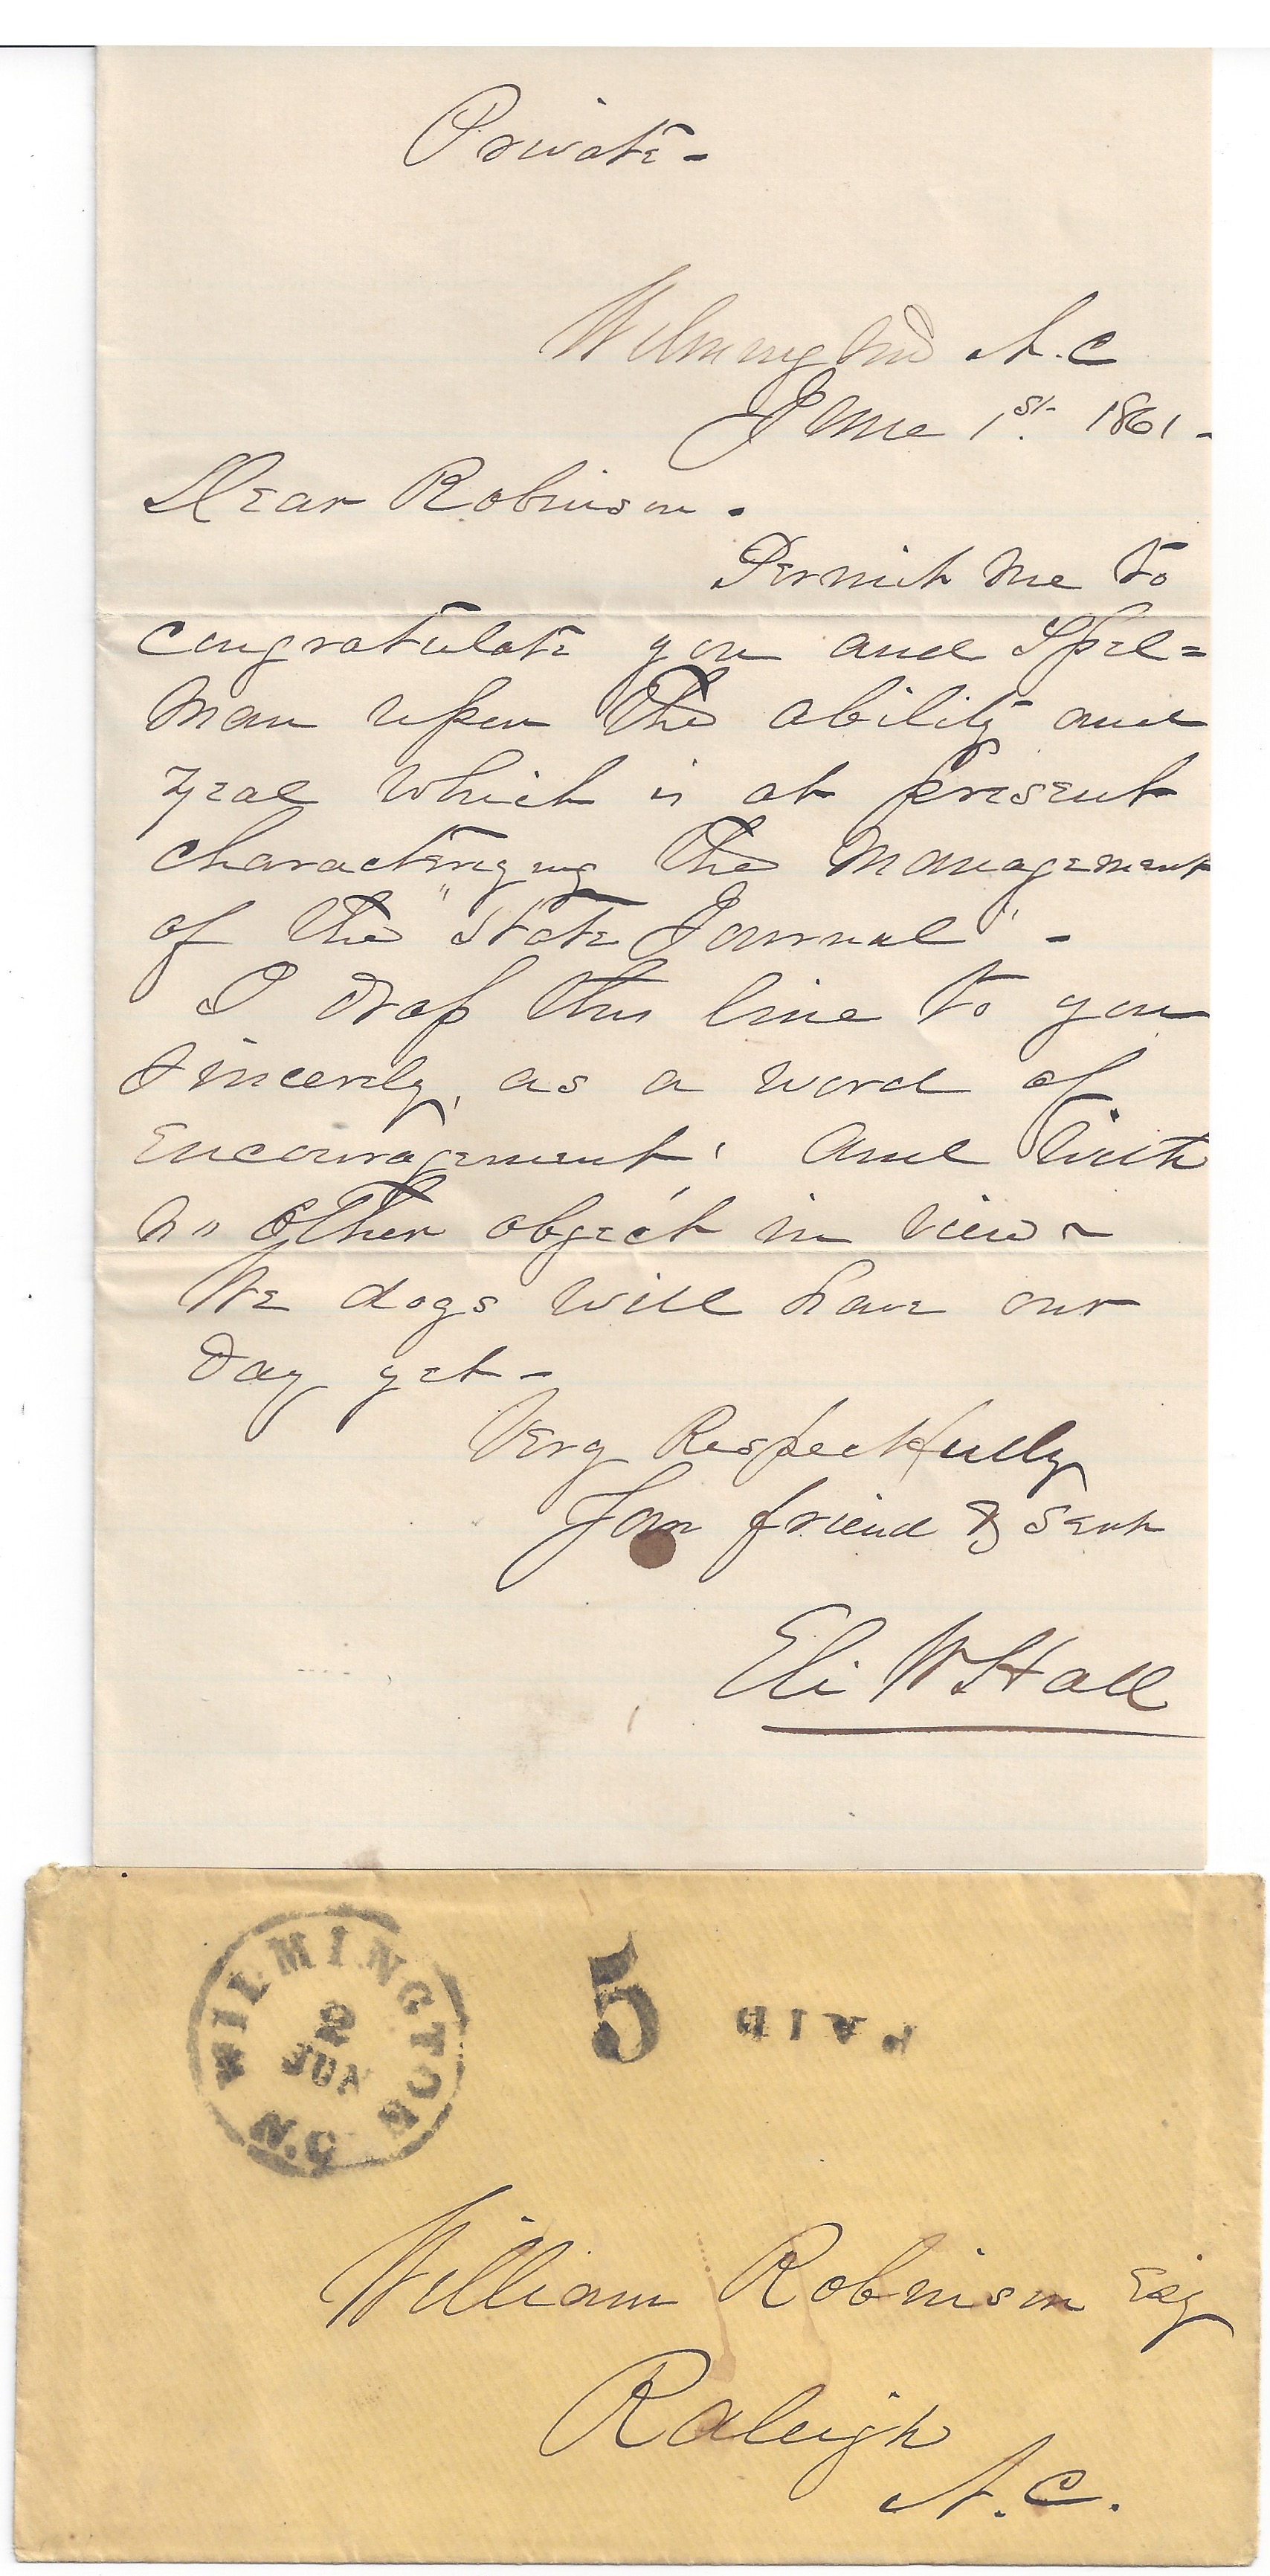 Private -
Wilmington N.C
June 1st. 1861 -
Dear Robinson.
Permit me to
congratulate you and Spel=
man upon the ability and
zeal which is at present
characterizing the management
of the "State Journal" -
I drop this line to you
sincerely, as a word of
encouragement; and with
no other object in view -
We dogs will have our
day yet -
Very Respectfully
Your friend & Servt
Eli W Hall
WILMINGTON N.C.
2
JUN
5 PAID
William Robinson Esq
Raleigh
N.C.